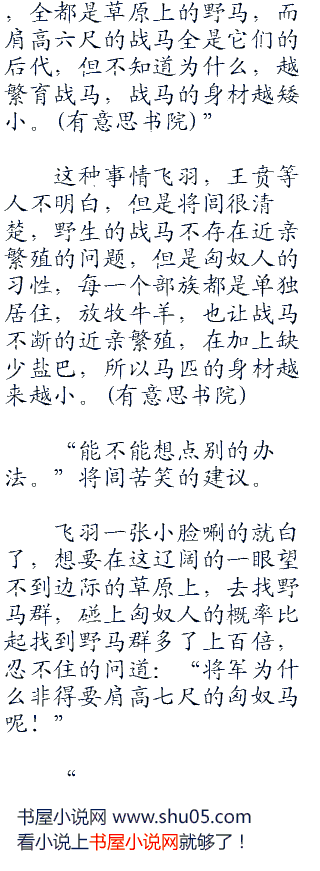 ，全都是草原上的野马，而
肩高六尺的战马全是它们的
后代，但不知道为什么，越
繁育战马，战马的身材越矮
小。(有意思书院)”
这种事情飞羽，王贲等
人不明白，但是将闾很清
楚，野生的战马不存在近亲
繁殖的问题，但是匈奴人的
习性，每一个部族都是单独
居住，放牧牛羊，也让战马
不断的近亲繁殖，在加上缺
少盐巴，所以马匹的身材越
来越小。(有意思书院)
“能不能想点别的办
法。”将闾苦笑的建议。
飞羽一张小脸唰的就白
了，想要在这辽阔的一眼望
不到边际的草原上，去找野
马群，碰上匈奴人的概率比
起找到野马群多了上百倍，
忍不住的问道：“将军为什
么非得要肩高七尺的匈奴马
呢！”
“
书屋小说网 www.shu05.com
看小说上书屋小说网就够了！